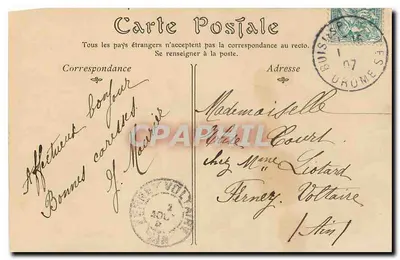 Carte Postale
Tous les pays étrangers n'acceptent pas la correspondance au recto.
Se renseigner à la poste.
Correspondance
Adresse
Affectueux bonjour
Bonnes caresses
J. Maurin
Mademoiselle
Court
Chez Mme Liotard
Ferney-Voltaire
(Ain)
DROME
07
FERNEY-VOLTAIRE
AIN
CPAPHIL